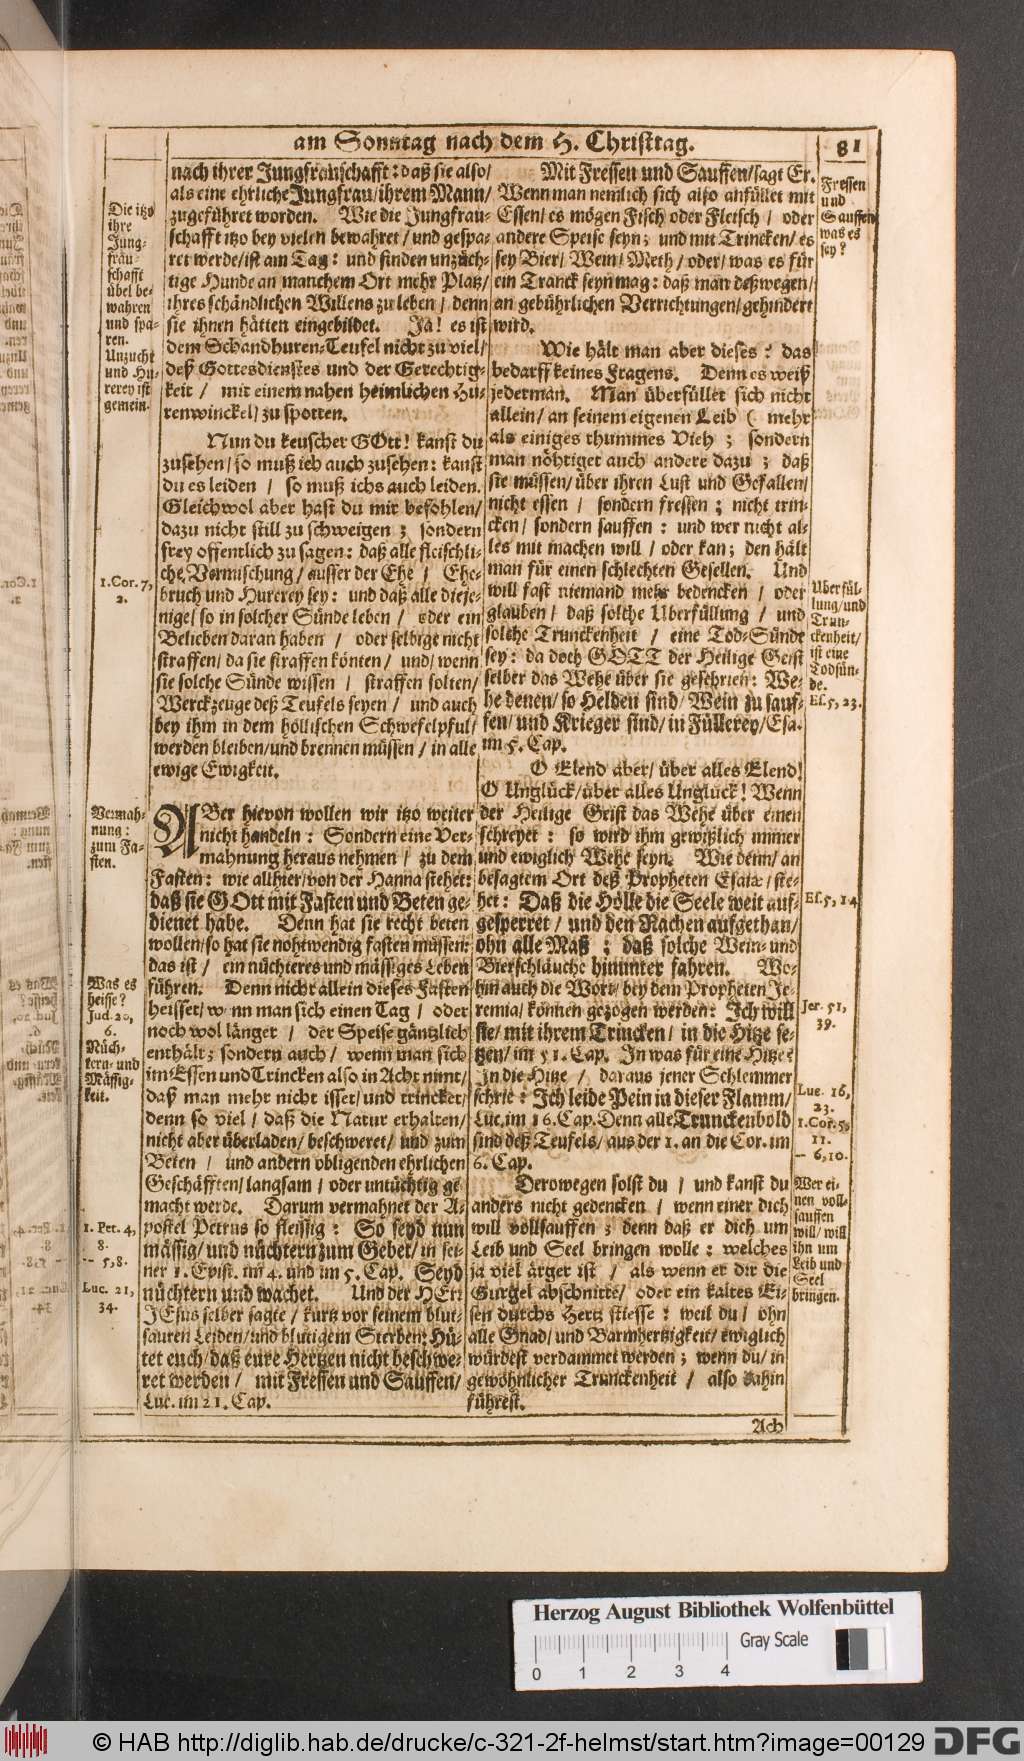 am Sonntag nach dem H. Christtag.
81
Die itzo
ihre
Jung-
frau-
schafft
übel be-
wahren
und spa-
ren.
Unzucht
und Hu-
rerey ist
gemein.
1. Cor. 7,
2.
Vermah-
nung:
zum Fa-
sten.
Was es
heisse?
Jud. 20,
6.
Nüch-
tern- und
Mässig-
keit.
1. Pet. 4,
8.
-- 5, 8.
Luc. 21,
34.
nach ihrer Jungfrauschafft: daß sie also/
als eine ehrliche Jungfrau/ ihrem Mann/
zugeführet worden. Wie die Jungfrau-
schafft itzo bey vielen bewahret/ und gespa-
ret werde/ ist am Tag: und finden unzüch-
tige Hunde an manchem Ort mehr Platz/
ihres schändlichen Willens zu leben/ denn
sie ihnen hätten eingebildet. Ja! es ist
dem Schandhuren-Teufel nicht zu viel/
deß Gottesdienstes und der Gerechtig-
keit/ mit einem nahen heimlichen Hu-
renwinckel/ zu spotten.
Nun du keuscher GOtt! kanst du
zusehen/ so muß ich auch zusehen: kanst
du es leiden/ so muß ichs auch leiden.
Gleichwol aber hast du mir befohlen/
dazu nicht still zu schweigen; sondern
frey offentlich zu sagen: daß alle fleischli-
che Vermischung/ ausser der Ehe/ Ehe-
bruch und Hurerey sey: und daß alle dieje-
nige/ so in solcher Sünde leben/ oder ein
Belieben daran haben/ oder selbige nicht
straffen/ da sie straffen könten/ und/ wenn
sie solche Sünde wissen/ straffen solten/
Werckzeuge deß Teufels seyen/ und auch
bey ihm in dem höllischen Schwefelpful/
werden bleiben/ und brennen müssen/ in alle
ewige Ewigkeit.
ABer hievon wollen wir itzo weiter
nicht handeln: Sondern eine Ver-
mahnung heraus nehmen/ zu dem
Fasten: wie allhier/ von der Hanna stehet:
daß sie GOtt mit Fasten und Beten ge-
dienet habe. Denn hat sie recht beten
wollen/ so hat sie nohtwendig fasten müssen:
das ist/ ein nüchteres und mässiges Leben
führen. Denn nicht allein dieses Fasten
heisset/ wenn man sich einen Tag/ oder
noch wol länger/ der Speise gäntzlich
enthält; sondern auch/ wenn man sich
im Essen und Trincken also in Acht nimt/
daß man mehr nicht isset/ und trincket/
denn so viel/ daß die Natur erhalten/
nicht aber überladen/ beschweret/ und zum
Beten/ und andern obligenden ehrlichen
Geschäfften/ langsam/ oder untüchtig ge-
macht werde. Darum vermahnet der A-
postel Petrus so fleissig: So seyd nun
mässig/ und nüchtern zum Gebet/ in sei-
ner 1. Epist. im 4. und im 5. Cap. Seyd
nüchtern und wachet. Und der HErr
JEsus selber sagte/ kurtz vor seinem blut-
sauren Leiden/ und blutigem Sterben: Hü-
tet euch/ daß eure Hertzen nicht beschwe-
ret werden/ mit Fressen und Sauffen/
Luc. im 21. Cap.
Mit Fressen und Sauffen/ sagt Er.
Wenn man nemlich sich also anfüllet mit
Essen/ es mögen Fisch oder Fleisch/ oder
andere Speise seyn; und mit Trincken/ es
sey Bier/ Wein/ Meth/ oder/ was es für
ein Tranck seyn mag: daß man deßwegen/
an gebührlichen Verrichtungen/ gehindert
wird.
Wie hält man aber dieses? das
bedarff keines Fragens. Denn es weiß
jederman. Man überfüllet sich nicht
allein/ an seinem eigenen Leib (mehr
als einiges thummes Vieh; sondern
man nöhtiget auch andere dazu; daß
sie müssen/ über ihren Lust und Gefallen/
nicht essen/ sondern fressen; nicht trin-
cken/ sondern sauffen: und wer nicht al-
les mit machen will/ oder kan; den hält
man für einen schlechten Gesellen. Und
will fast niemand mehr bedencken/ oder
glauben/ daß solche Uberfüllung/ und
solche Trunckenheit/ eine Tod-Sünde
sey: da doch GOTT der Heilige Geist
selber das Wehe über sie geschrien: We-
he denen/ so Helden sind/ Wein zu sauf-
fen/ und Krieger sind/ in Füllerey/ Esa.
im 5. Cap.
O Elend aber/ über alles Elend!
O Unglück/ über alles Unglück! Wenn
der Heilige Geist das Wehe über einen
schreyet: so wird ihm gewißlich immer
und ewiglich Wehe seyn. Wie denn/ an
besagtem Ort deß Propheten Esaiæ/ ste-
het: Daß die Hölle die Seele weit auf-
gesperret/ und den Rachen aufgethan/
ohn alle Maß; daß solche Wein- und
Bierschläuche hinunter fahren. Wo-
hin auch die Wort/ bey dem Propheten Je-
remia/ können gezogen werden: Ich will
sie/ mit ihrem Trincken/ in die Hitze se-
tzen/ im 51. Cap. In was für eine Hitze?
In die Hitze/ daraus jener Schlemmer
schrie: Ich leide Pein in dieser Flamm/
Luc. im 16. Cap. Denn alle Trunckenbold
sind deß Teufels/ aus der 1. an die Cor. im
6. Cap.
Derowegen solst du/ und kanst du
anders nicht gedencken/ wenn einer dich
will vollsauffen; denn daß er dich um
Leib und Seel bringen wolle: welches
ja viel ärger ist/ als wenn er dir die
Gurgel abschnitte/ oder ein kaltes Ei-
sen durchs Hertz stiesse: weil du/ ohn
alle Gnad/ und Barmhertzigkeit/ ewiglich
würdest verdammet werden; wenn du/ in
gewöhnlicher Trunckenheit/ also dahin
führest.
Ach
Fressen
und
Sauffen
was es
sey?
Uberfül-
lung/ und
Trun-
ckenheit/
ist eine
Todsün-
de.
Es. 5, 23.
Es. 5, 14
Jer. 51,
39.
Luc. 16,
23.
1. Cor. 5,
11.
-- 6, 10.
Wer ei-
nen voll-
sauffen
will/ will
ihn um
Leib und
Seel
bringen.
Herzog August Bibliothek Wolfenbüttel
Gray Scale
0 1 2 3 4
© HAB http://diglib.hab.de/drucke/c-321-2f-helmst/start.htm?image=00129
DFG